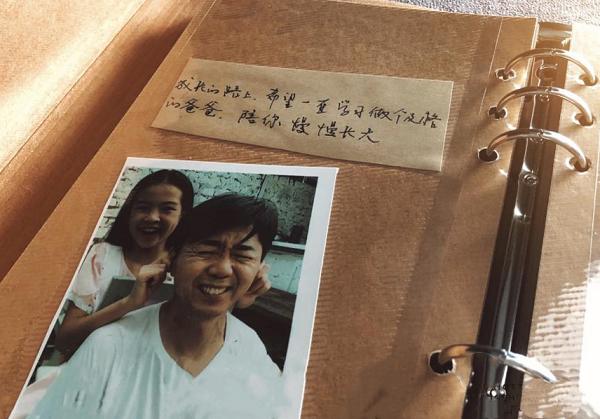 成长的路上，希望一直学习做个及格
的爸爸，陪你慢慢长大